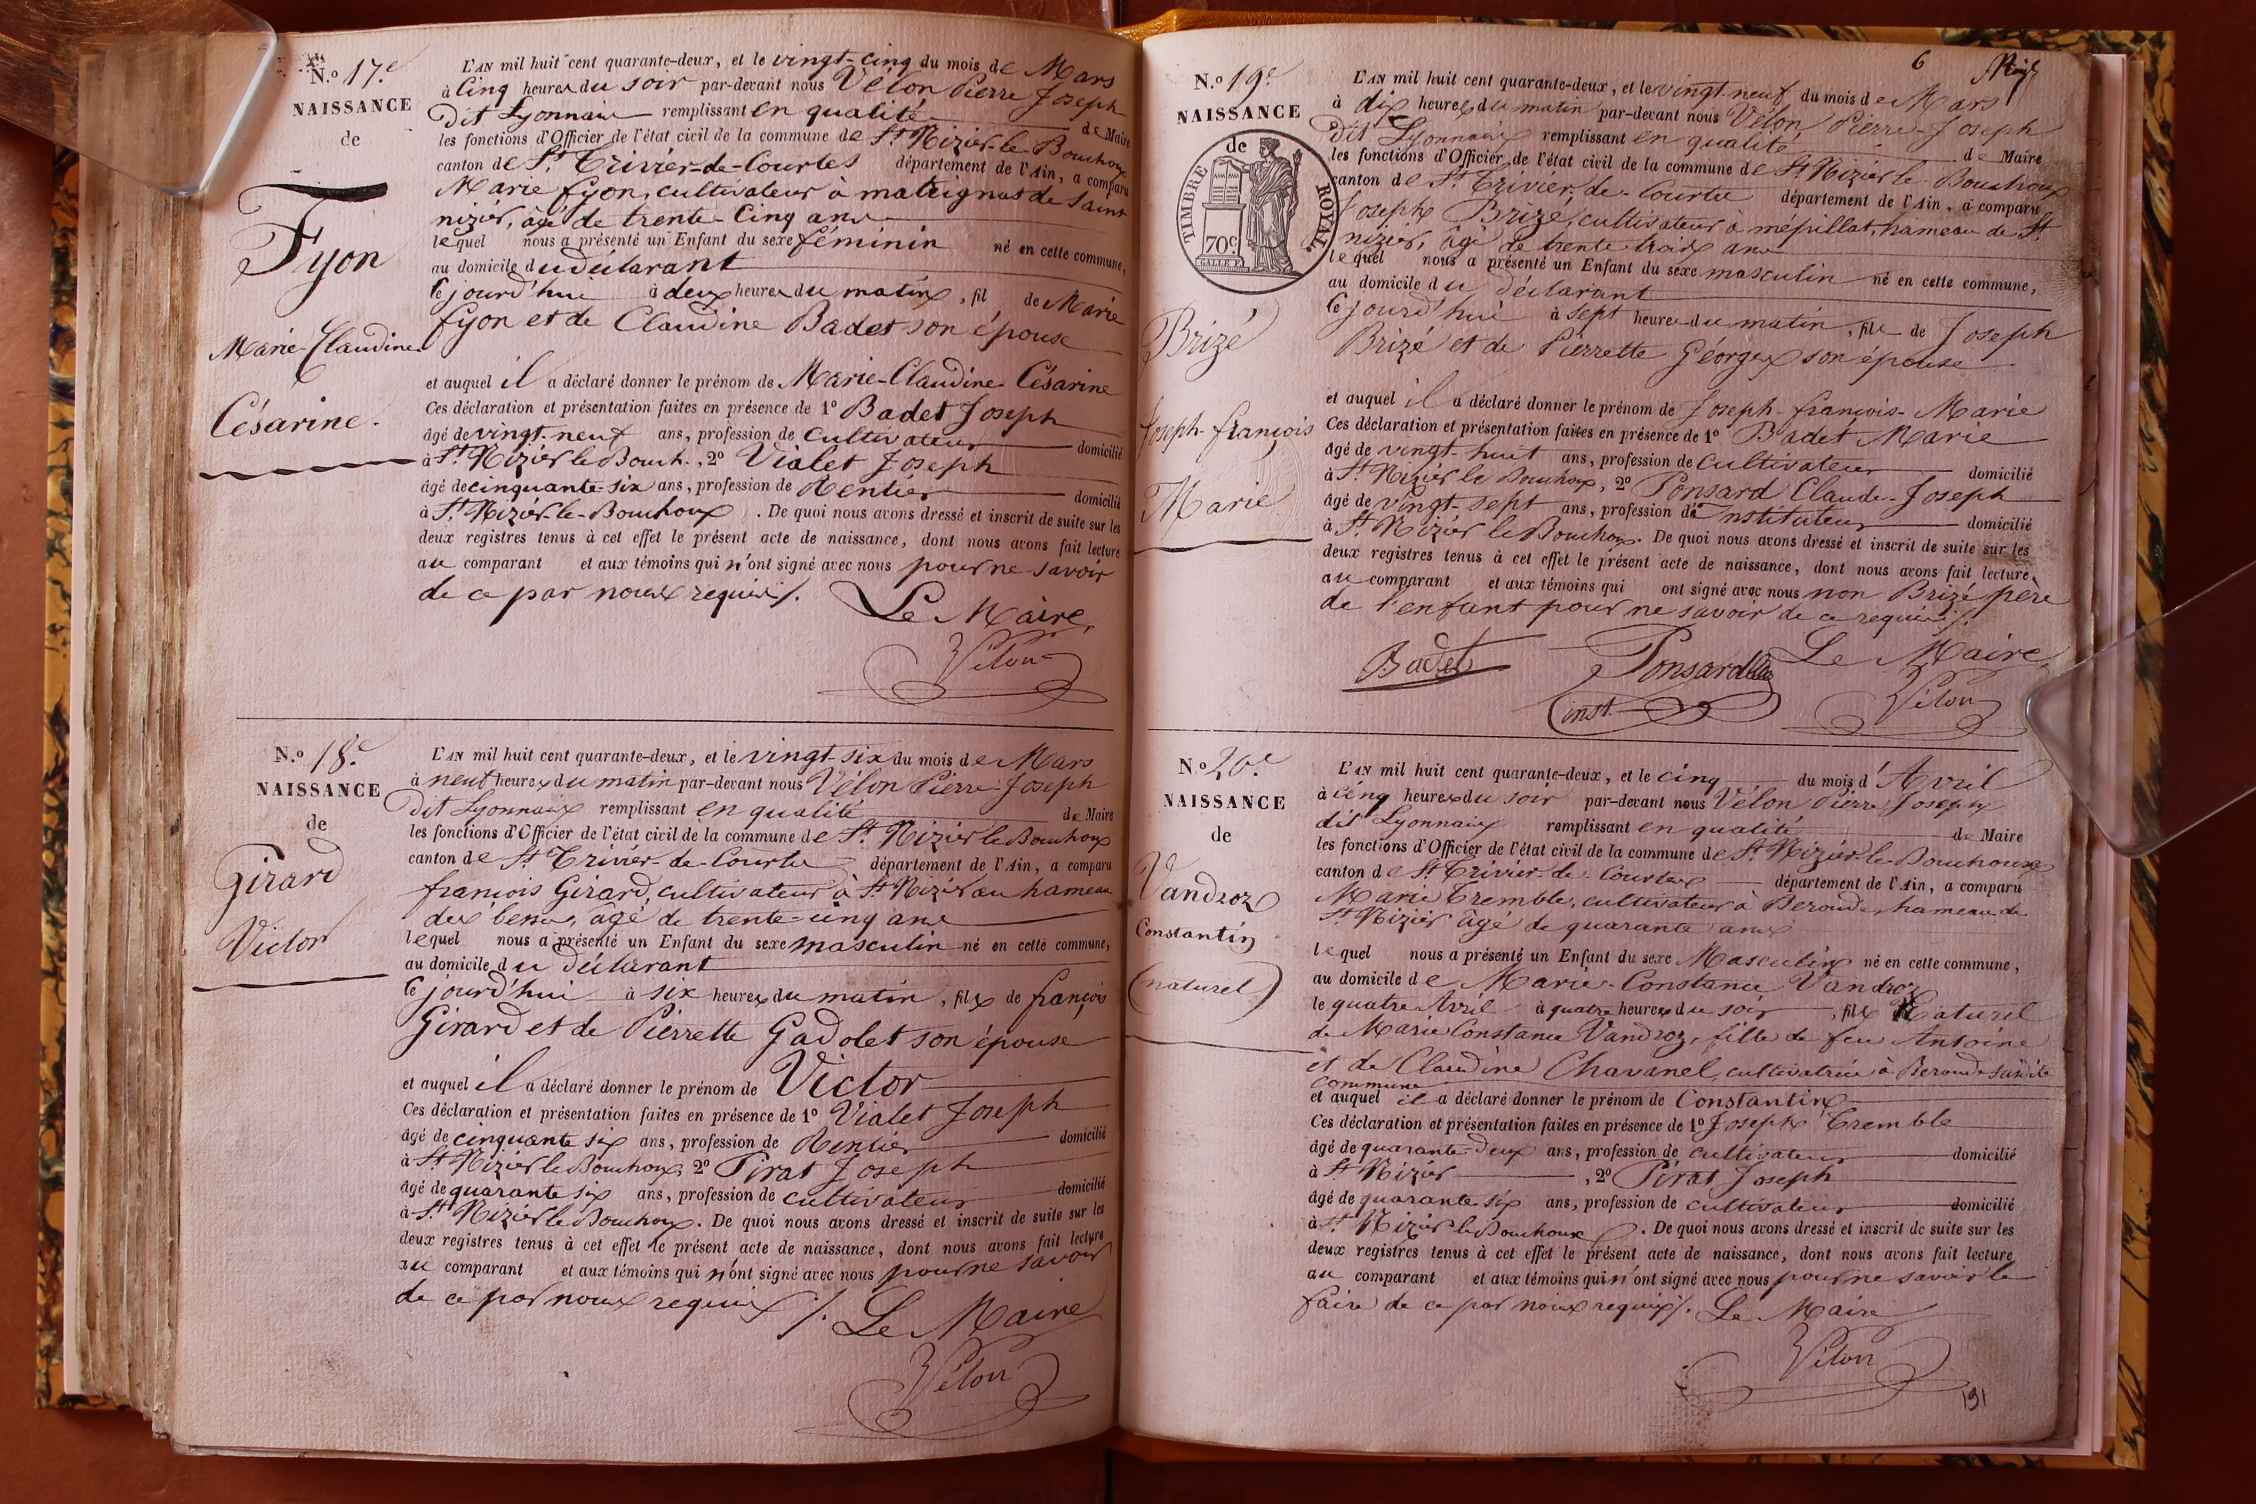 N.º 17.e
NAISSANCE
de
Fyon
Marie-Claudine
Césarine.
L'AN mil huit cent quarante-deux, et le vingt-cinq du mois de Mars
à cinq heures du soir par-devant nous Vélon Pierre Joseph
dit Lyonnais remplissant en qualité de Maire
les fonctions d'Officier de l'état civil de la commune de St. Nizier-le-Bouchoux
canton de St. Trivier-de-Courtes département de l'Ain, a comparu
Marie fyon, cultivateur à mateignat de Saint
nizier, âgé de trente-Cinq ans
lequel nous a présenté un Enfant du sexe féminin né en cette commune,
au domicile du déclarant
ce jourd'hui à deux heures du matin, fil de Marie
fyon et de Claudine Badet son épouse
et auquel il a déclaré donner le prénom de Marie-Claudine Césarine
Ces déclaration et présentation faites en présence de 1º Badet Joseph
âgé de vingt-neuf ans, profession de cultivateur domicilié
à St. Nizier le Bouch. , 2º Vialet Joseph
âgé de cinquante-six ans, profession de Rentier domicilié
à St. Nizier-le-Bouchoux . De quoi nous avons dressé et inscrit de suite sur les
deux registres tenus à cet effet le présent acte de naissance, dont nous avons fait lecture
au comparant et aux témoins qui n'ont signé avec nous pour ne savoir
de ce par nous requis /. Le Maire,
Vélon
N.º 18.e
NAISSANCE
de
Girard
Victor
L'AN mil huit cent quarante-deux, et le vingt-six du mois de Mars
à neuf heures du matin par-devant nous Vélon Pierre Joseph
dit Lyonnais remplissant en qualité de Maire
les fonctions d'Officier de l'état civil de la commune de St. Nizier le Bouchoux
canton de St. Trivier-de-Courtes département de l'Ain, a comparu
françois Girard, cultivateur à St. Nizier au hameau
des , âgé de trente-cinq ans
lequel nous a présenté un Enfant du sexe masculin né en cette commune,
au domicile du déclarant
ce jourd'hui à six heures du matin, fils de françois
Girard et de Pierrette Gadolet son épouse
et auquel il a déclaré donner le prénom de Victor
Ces déclaration et présentation faites en présence de 1º Vialet Joseph
âgé de cinquante six ans, profession de Rentier domicilié
à St. Nizier le Bouchoux, 2º Pirat Joseph
âgé de quarante six ans, profession de cultivateur domicilié
à St. Nizier le Bouchoux. De quoi nous avons dressé et inscrit de suite sur les
deux registres tenus à cet effet le présent acte de naissance, dont nous avons fait lecture
au comparant et aux témoins qui n'ont signé avec nous pour ne savoir
de ce par nous requis /. Le Maire
Vélon
6
N.º 19.e
NAISSANCE
de
TIMBRE ROYAL
70c
Brizé
Joseph-françois
Marie
L'AN mil huit cent quarante-deux, et le vingt-neuf du mois de Mars
à dix heures du matin par-devant nous Vélon Pierre-Joseph
dit Lyonnais remplissant en qualité de Maire
les fonctions d'Officier de l'état civil de la commune de St. Nizier le Bouchoux
canton de St. Trivier-de-Courtes département de l'Ain, a comparu
Joseph Brizé, cultivateur à mépillat, hameau de St.
nizier, âgé de trente-trois ans
lequel nous a présenté un Enfant du sexe masculin né en cette commune,
au domicile du déclarant
ce jourd'hui à sept heures du matin, fils de Joseph
Brizé et de Pierrette Géorges son épouse
et auquel il a déclaré donner le prénom de Joseph-françois-Marie
Ces déclaration et présentation faites en présence de 1º Badet Marie
âgé de vingt-huit ans, profession de cultivateur domicilié
à St. Nizier le Bouchoux, 2º Ponsard Claude-Joseph
âgé de vingt-sept ans, profession d'instituteur domicilié
à St. Nizier le Bouchoux. De quoi nous avons dressé et inscrit de suite sur les
deux registres tenus à cet effet le présent acte de naissance, dont nous avons fait lecture
au comparant et aux témoins qui ont signé avec nous non Brizé père
de l'enfant pour ne savoir de ce requis /.
Badet Ponsard Le Maire
inst. Vélon
N.º 20.e
NAISSANCE
de
Vandroz
Constantin
(naturel)
L'AN mil huit cent quarante-deux, et le cinq du mois d'Avril
à cinq heures du soir par-devant nous Vélon Pierre Joseph
dit Lyonnais remplissant en qualité de Maire
les fonctions d'Officier de l'état civil de la commune de St. Nizier-le-Bouchoux
canton de St. Trivier-de-Courtes département de l'Ain, a comparu
Marie Tremble, cultivateur à Beroude, hameau de
St. Nizier âgé de quarante ans
lequel nous a présenté un Enfant du sexe Masculin né en cette commune,
au domicile de Marie-Constance Vandroz
le quatre Avril à quatre heures du soir, fils Naturel
de Marie Constance Vandroz, fille de feu Antoine
et de Claudine Chavanel, cultivatrice à Beroude susdite
commune
et auquel il a déclaré donner le prénom de Constantin
Ces déclaration et présentation faites en présence de 1º Joseph Tremble
âgé de quarante-deux ans, profession de cultivateur domicilié
à St. Nizier , 2º Pirat Joseph
âgé de quarante six ans, profession de cultivateur domicilié
à St. Nizier le Bouchoux . De quoi nous avons dressé et inscrit de suite sur les
deux registres tenus à cet effet le présent acte de naissance, dont nous avons fait lecture
au comparant et aux témoins qui n'ont signé avec nous pour ne savoir le
faire de ce par nous requis /. Le Maire
Vélon
191